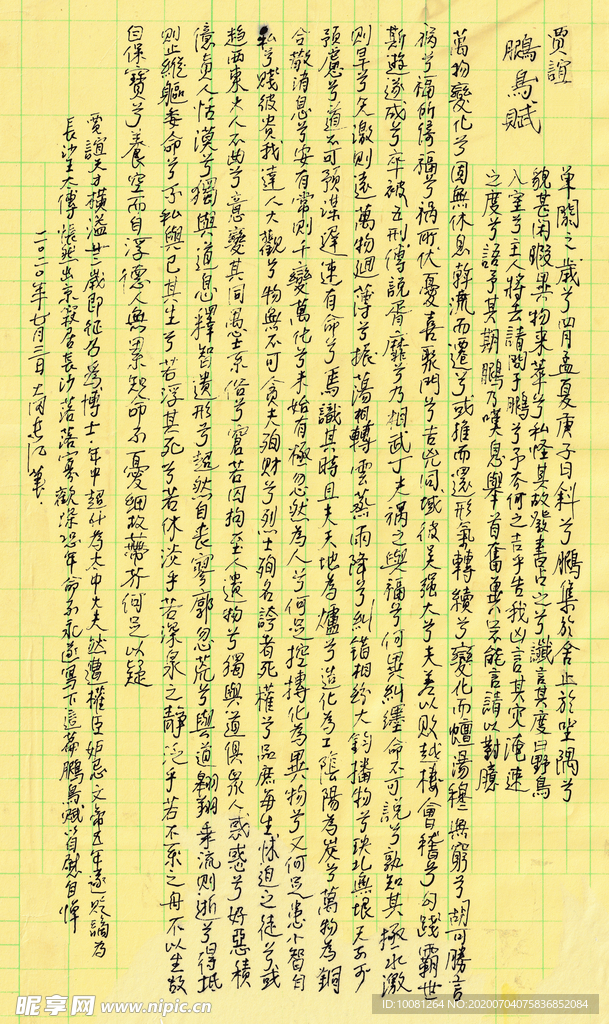 贾谊
鵬鳥赋
单閼之歲兮四月孟夏庚子日斜兮鵬集於舍止於坐隅兮
貌甚閑暇異物来萃兮私怪其故發書占之兮讖言其度曰野鳥
入室兮主人將去請問于鵬兮予去何之吉乎告我凶言其灾淹速
之度兮語予其期鵬乃嘆息舉首奮翼口不能言請以對臆
萬物變化兮固無休息斡流而遷兮或推而還形氣轉續兮變化而蟺沕穆無窮兮胡可勝言
祸兮福所倚福兮祸所伏憂喜聚門兮吉凶同域彼吴强大兮夫差以败越棲會稽兮勾践霸世
斯遊遂成兮卒被五刑傅説胥靡兮乃相武丁夫祸之與福兮何異糾纆命不可説兮孰知其極水激
則旱兮矢激則遠萬物迴薄兮振蕩相轉雲蒸雨降兮糾錯相紛大鈞播物兮坱圠無垠天不可
預慮兮道不可预谋遲速有命兮焉識其時且夫天地為爐兮造化為工陰陽為炭兮萬物為銅
合散消息兮安有常則千變萬化兮未始有極忽然為人兮何足控摶化為異物兮又何足患小智自
私兮賤彼贵我達人大觀兮物無不可贪夫殉财兮烈士殉名誇者死權兮品庶每生怵迫之徒兮或
趋西東大人不曲兮意變其同愚士系俗兮窘若囚拘至人遺物兮獨與道俱眾人惑惑兮好惡積
億真人恬漠兮獨與道息釋智遺形兮超然自丧寥廓忽荒兮與道翱翔乘流則逝兮得坻
則止縱軀委命兮不私與已其生兮若浮其死兮若休淡乎若深泉之静泛乎若不系之舟不以生故
自保寶兮養空而自浮德人無累知命不憂細故蒂芥何足以疑
贾誼天才横溢廿歲即征为爲博士·年中超升为太中大夫然遭權臣妒忌文帝五年遂贬謫为
長沙王太傅悵然出京寂居長沙落落寡歡深恐年命不永遂寫下這篇鵬鳥赋以自慰自悼
二〇二〇年七月三日
昵享网 www.nipic.cn
ID:10081264 NO:20200704075836852084